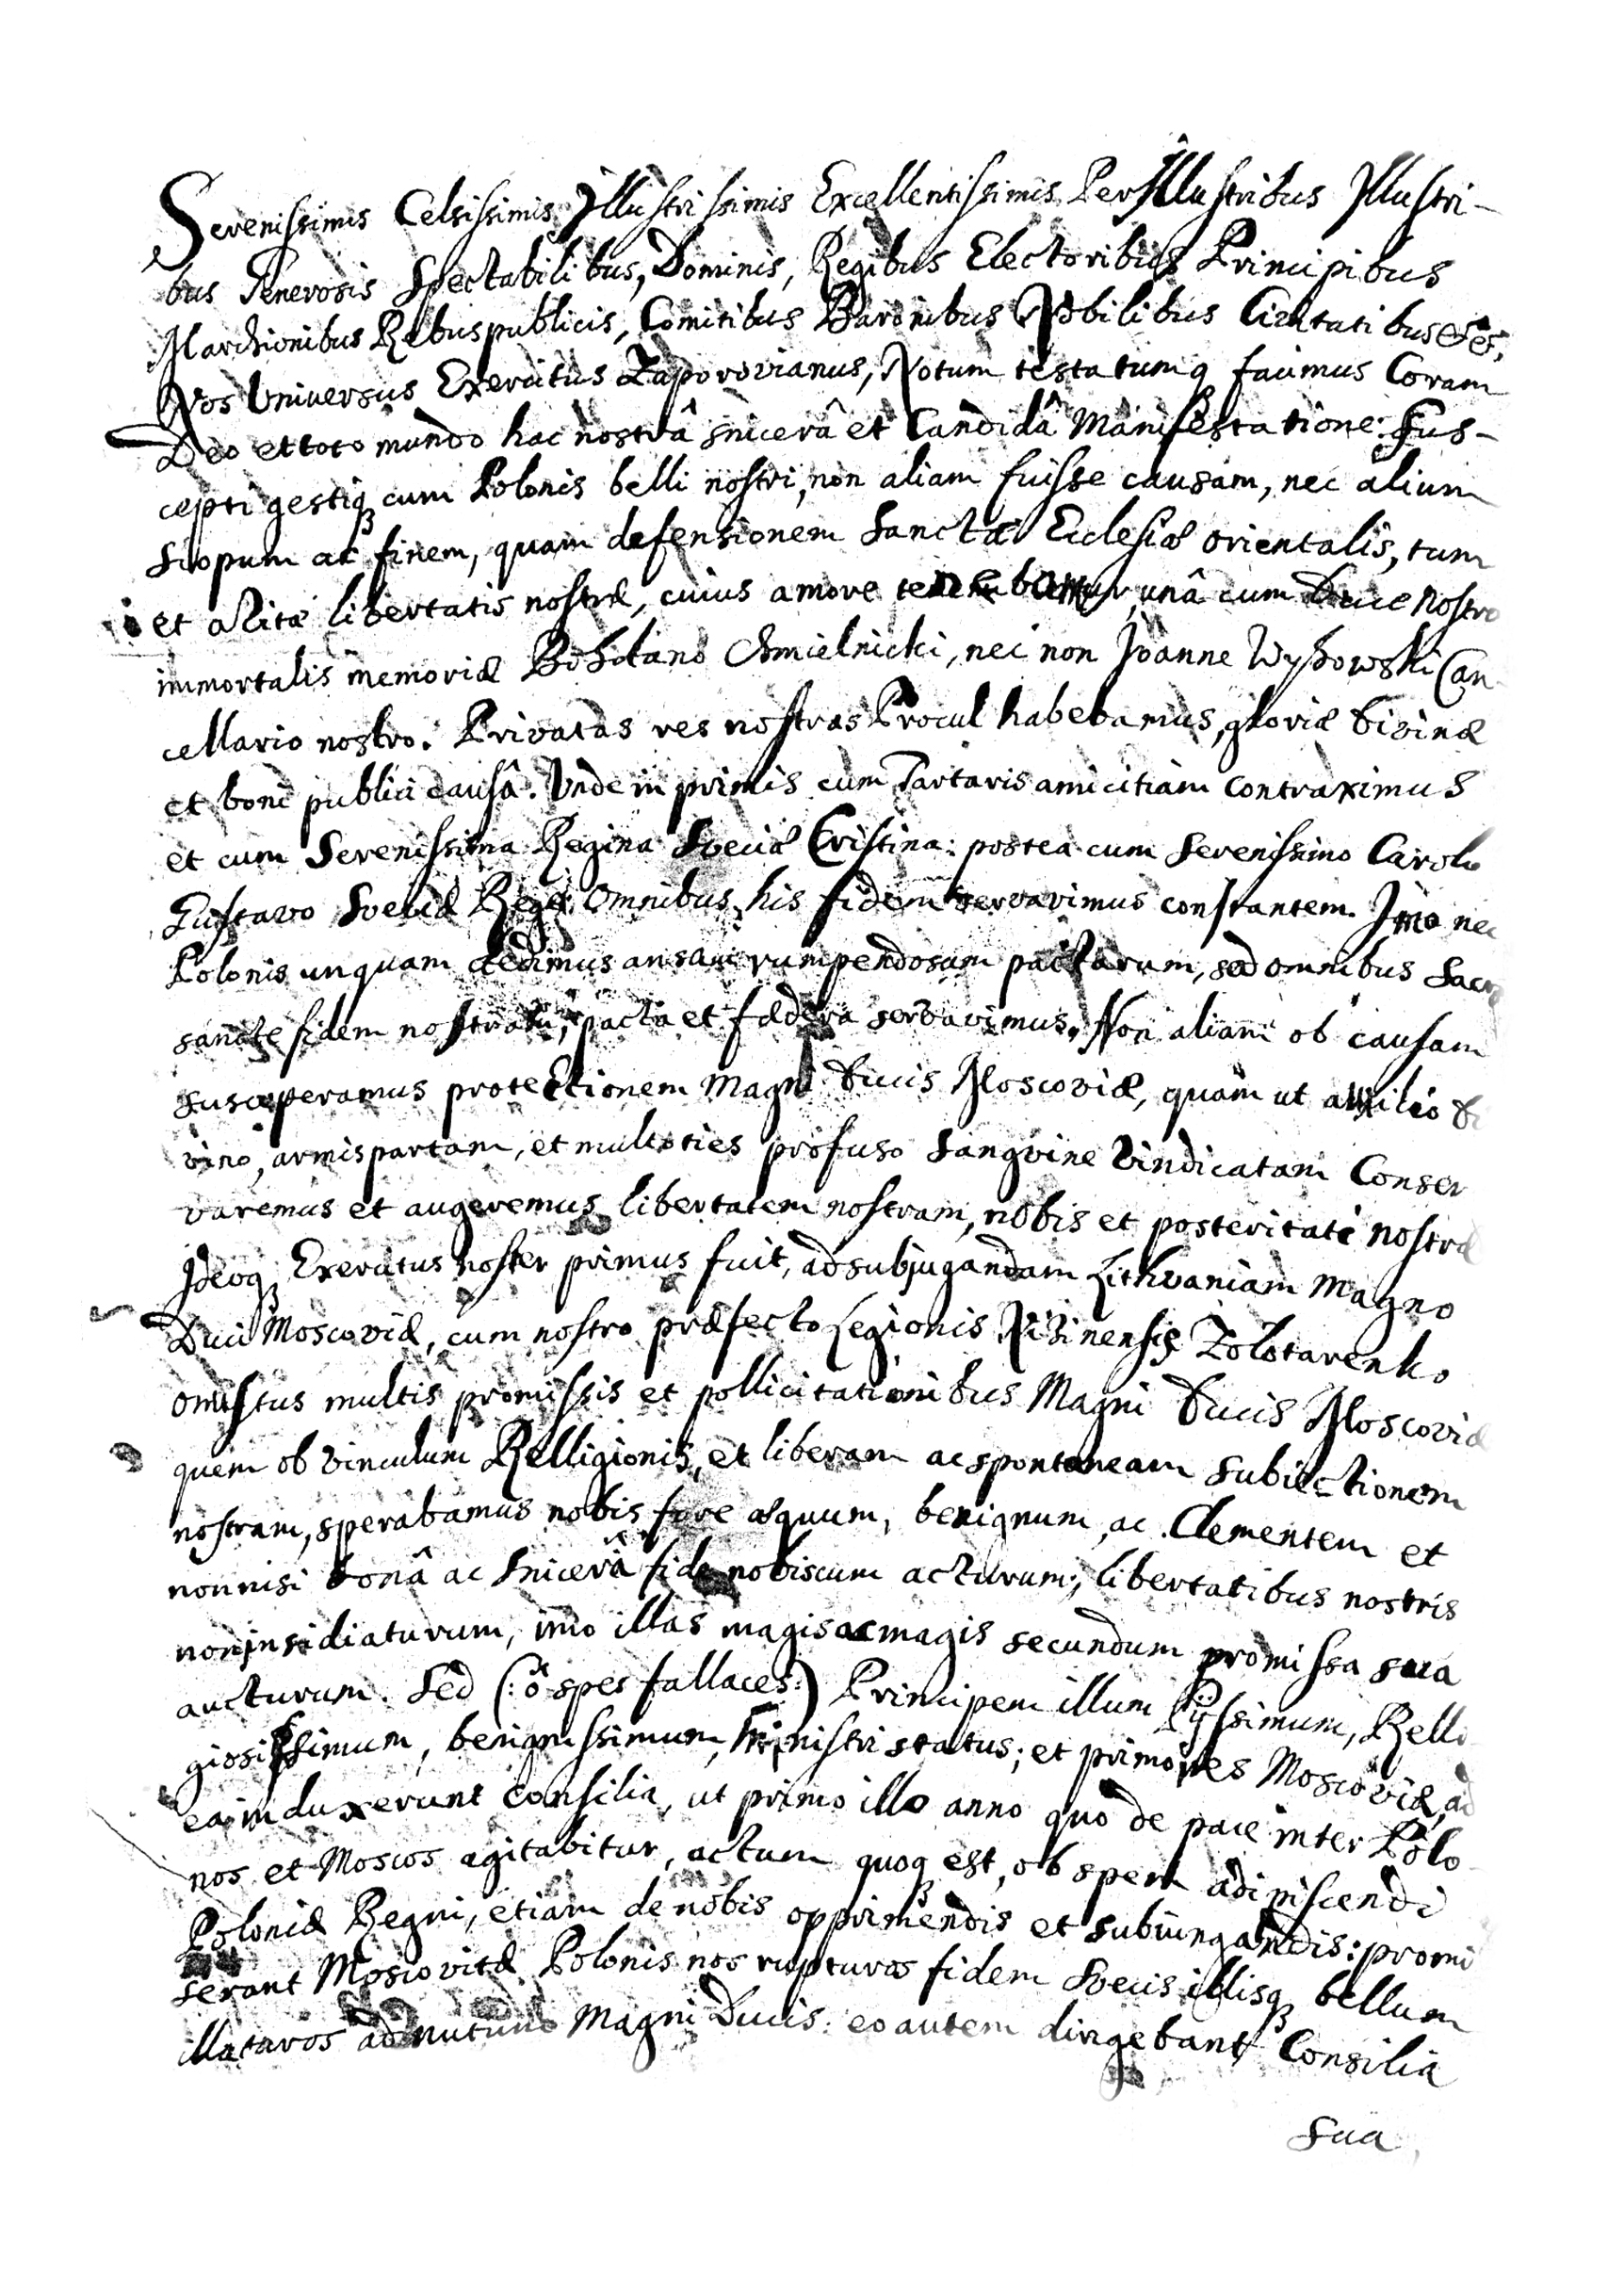 Serenissimis Celsissimis Illustrissimis Excellentissimis Perillustribus Illustri-
bus Generosis Spectabilibus, Dominis, Regibus Electoribus Principibus
Marchionibus Rebuspublicis, Comitibus Baronibus Nobilibus Civitatibus &c,
Nos Universus Exercitus Zaporovianus, Notum testatumq facimus Coram
Deo et toto mundo hac nostrâ sincerâ et Candidâ Manifestatione: Sus-
cepti gestiq cum Polonis belli nostri, non aliam fuisse causam, nec alium
scopum ac finem, quam defensionem Sanctæ Ecclesiæ orientalis, tum
et avitæ libertatis nostræ, cuius amore tenebamur, unâ cum Duce nostro
immortalis memoriæ Bohdano Chmielnicki, nec non Joanne Wyhowski Can
cellario nostro. Privatas res nostras Procul habebamus, gloriæ divinæ
et boni publici causâ. Unde in primis cum Tartaris amicitiam contraximus
et cum Serenissima Regina Sveciæ Cristina: postea cum Serenissimo Carolo
Gustavo Sveciæ Rege, Omnibus his fidem servavimus constantem. Imo nec
Polonis unquam dedimus ansam rumpendorum pactorum, sed omnibus Sacro
sancte fidem nostram, pacta et fædera servavimus. Non aliam ob causam
susceperamus protectionem Magni Ducis Moscoviæ, quam ut auxilio di
vino, armis partam, et multoties profuso Sangvine Vindicatam Conser
varemus et augeremus libertatem nostram, nobis et posteritati nostræ
Ideoq Exercitus noster primus fuit, ad subjugandam Lithvaniam Magno
Duci Moscoviæ, cum nostro præfecto Legionis Nizinensis Zolotarenko
onustus multis promissis et pollicitationibus Magni Ducis Moscoviæ
quem ob Vinculum Relligionis, et liberam ac spontaneam Subiectionem
nostram, sperabamus nobis fore æquum, benignum, ac Clementem et
nonnisi bonâ ac sincerâ fide nobiscum acturum; libertatibus nostris
non insidiaturum, imo illas magis ac magis secundum promissa sua
aucturum. Sed (: ô spes fallaces :) Principem illum Pijssimum, Relli
giosissimum, benignissimum, Ministri status; et primores Moscoviæ, ad
ea induxerunt Consilia, ut primo illo anno quo de pace inter Polo
nos et Moscos agitabitur, actum quoq est, ob spem adipiscendi
Poloniæ Regni, etiam de nobis opprimendis et subiungandis: promi
serant Moscovitæ Polonis nos rupturos fidem Svecis illisq bellum
illaturos ad nutum Magni Ducis: eo autem dirigebant Consilia
sua